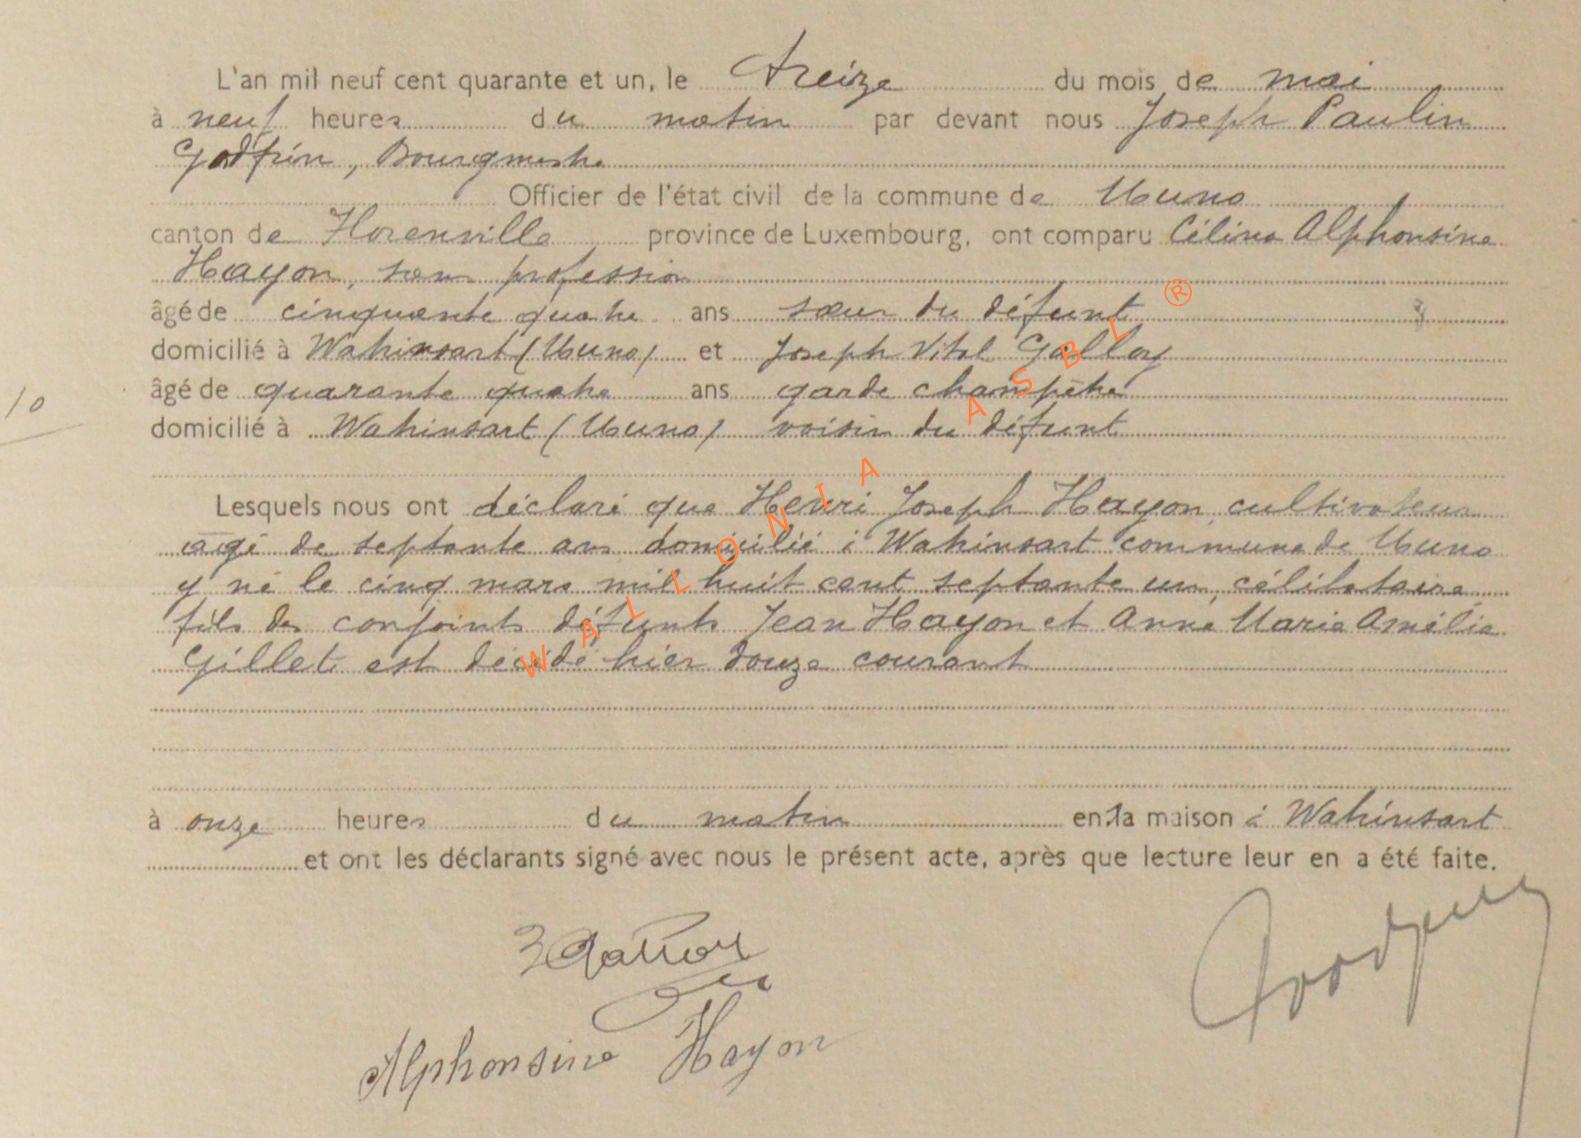 L'an mil neuf cent quarante et un, le treize du mois de mai
à neuf heures du matin par devant nous Joseph Paulin
Godfrin, Bourgmestre
Officier de l'état civil de la commune de Muno
canton de Florenville province de Luxembourg, ont comparu Célina Alphonsine
Hayon, sans profession
âgé de cinquante quatre ans sœur du défunt
domicilié à Watrinsart (Muno) et Joseph Vital Galloy
âgé de quarante quatre ans garde champêtre
domicilié à Watrinsart (Muno) voisin du défunt
10
Lesquels nous ont déclaré que Henri Joseph Hayon, cultivateur
âgé de septante ans domicilié à Watrinsart commune de Muno
y né le cinq mars mil huit cent septante un, célibataire,
fils des conjoints défunts Jean Hayon et Anne Marie Amélie
Gillet est décédé hier douze courant
à onze heures du matin en la maison à Watrinsart
et ont les déclarants signé avec nous le présent acte, après que lecture leur en a été faite.
J Galloy
Alphonsine Hayon
WALLONIA ASBL ®